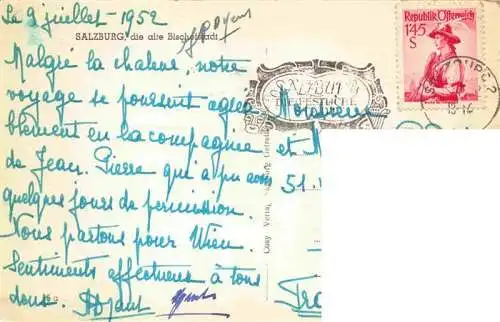 Le 9 juillet - 1952
SALZBURG, die alte Bischofstadt
Malgré la chaleur, notre
voyage se poursuit agréa
blement en la compagnie
de Jean-Pierre qui a pu avoir
quelques jours de permission.
Nous partons pour Wien.
Sentiments affectueux à tous
deux.
Republik Österreich
1·45
S
SALZBURG
Monsieur
et M
51.